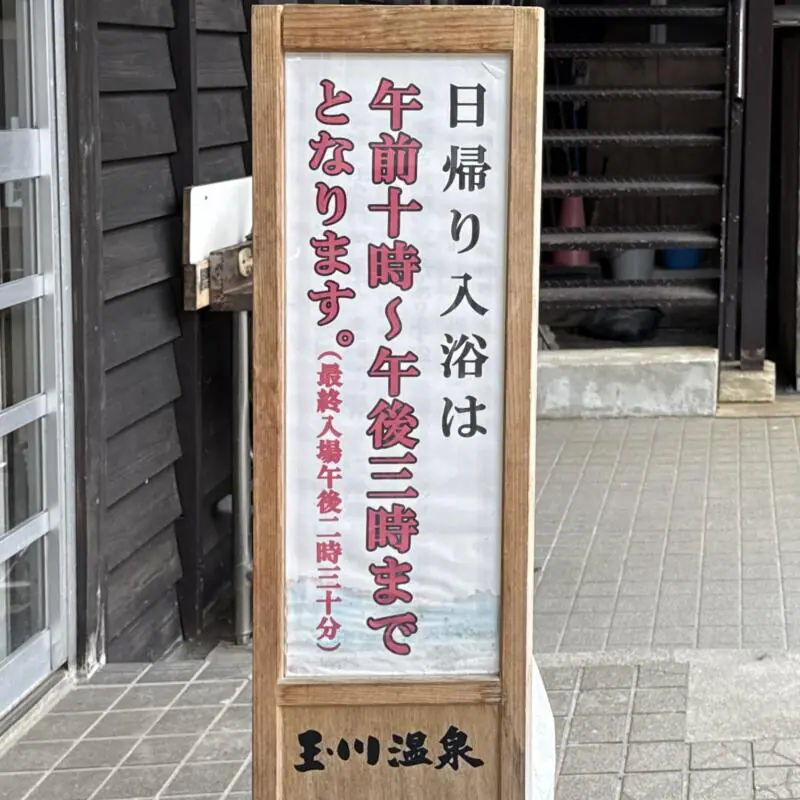 日帰り入浴は
午前十時～午後三時まで
となります。(最終入場午後二時三十分)
玉川温泉